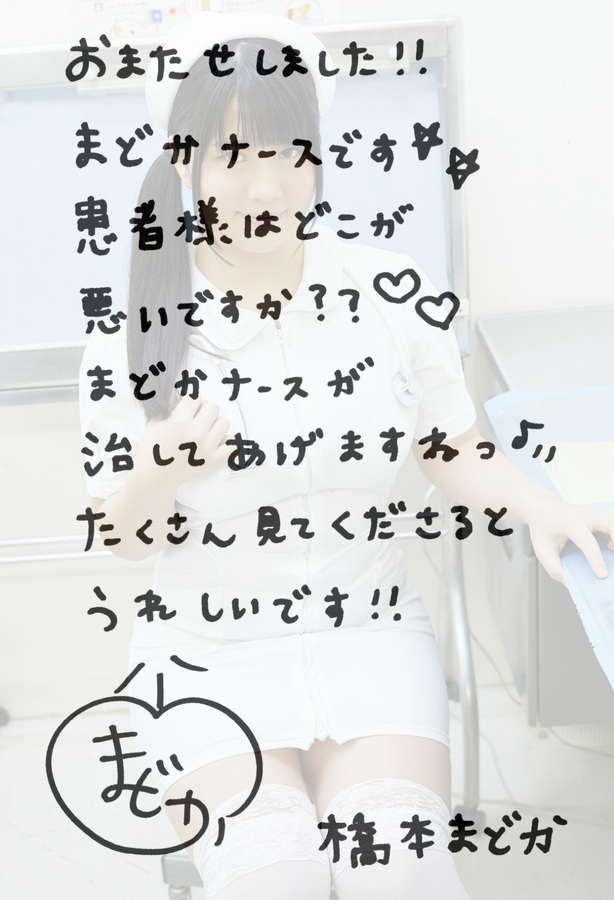 おまたせしました!!
まどかナースです☆☆
患者様はどこが
悪いですか??♡♡
まどかナースが
治してあげますねっ♪
たくさん見てくださると
うれしいです!!
まどか
橋本まどか